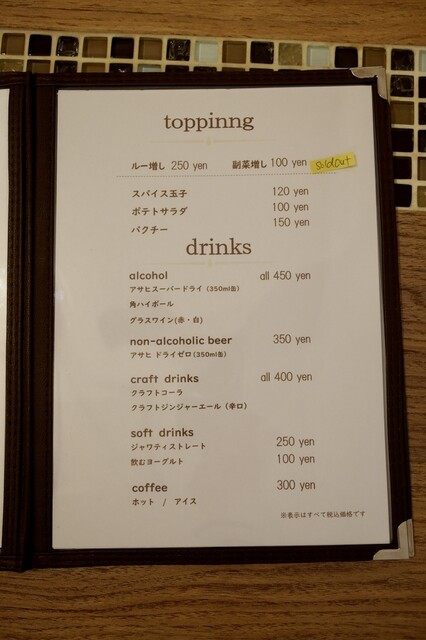 toppinng
ルー増し 250 yen 副菜増し 100 yen soldout
スパイス玉子 120 yen
ポテトサラダ 100 yen
パクチー 150 yen
drinks
alcohol all 450 yen
アサヒスーパードライ (350ml缶)
角ハイボール
グラスワイン(赤・白)
non-alcoholic beer 350 yen
アサヒ ドライゼロ(350ml缶)
craft drinks all 400 yen
クラフトコーラ
クラフトジンジャーエール (辛口)
soft drinks
ジャワティストレート 250 yen
飲むヨーグルト 100 yen
coffee 300 yen
ホット / アイス
※表示はすべて税込価格です